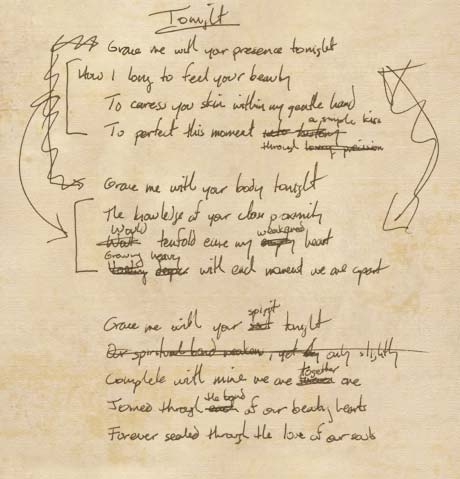 Tonight
Grace me with your presence tonight
How I long to feel your beauty
To caress you skin within my gentle hand
a simple kiss
To perfect this moment
through loving precision
Grace me with your body tonight
The knowledge of your close proximity
Would weakened
tenfold cure my empty heart
Growing heavy
deeper with each moment we are apart
spirit
Grace me with your tonight
Our spiritual bond weakens, yet only slightly
together
Complete with mine we are one
the bond
Joined through of our beating hearts
Forever sealed through the love of our souls